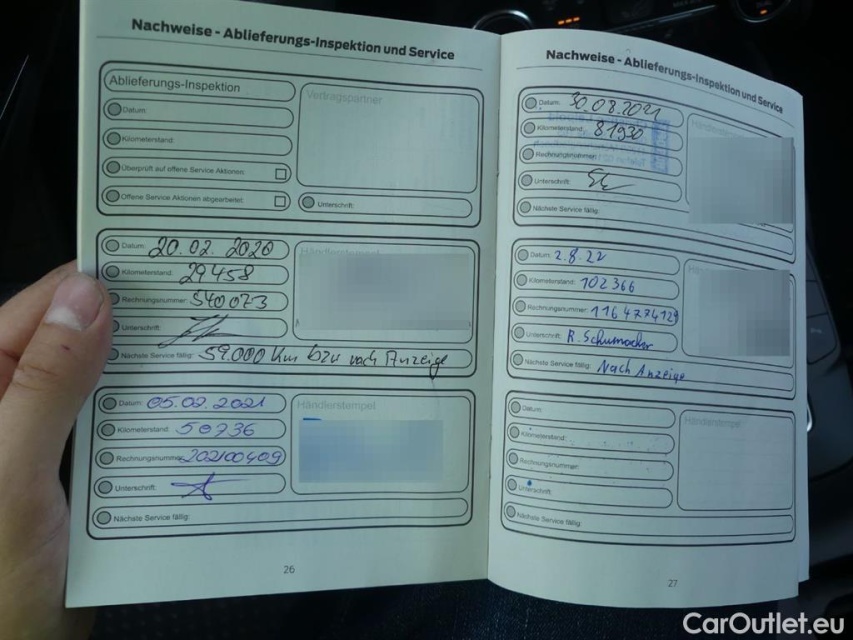 Nachweise - Ablieferungs-Inspektion und Service
Ablieferungs-Inspektion
Vertragspartner
Datum:
Kilometerstand:
Überprüft auf offene Service Aktionen:
Offene Service Aktionen abgearbeitet:
Unterschrift:
Datum: 20.02.2020
Händlerstempel
Kilometerstand: 29458
Rechnungsnummer: 540073
Unterschrift:
Nächste Service fällig: 59.000 km bzw nach Anzeige
Datum: 05.02.2021
Händlerstempel
Kilometerstand: 50736
Rechnungsnummer: 202100409
Unterschrift:
Nächste Service fällig:
26
Nachweise - Ablieferungs-Inspektion und Service
Datum: 30.08.2021
Kilometerstand: 81930
Rechnungsnummer:
Unterschrift:
Nächste Service fällig:
Datum: 2.8.22
Händlerstempel
Kilometerstand: 102366
Rechnungsnummer: 1164774129
Unterschrift: R. Schumacher
Nächste Service fällig: Nach Anzeige
Datum:
Händlerstempel
Kilometerstand:
Rechnungsnummer:
Unterschrift:
Nächste Service fällig:
27
CarOutlet.eu